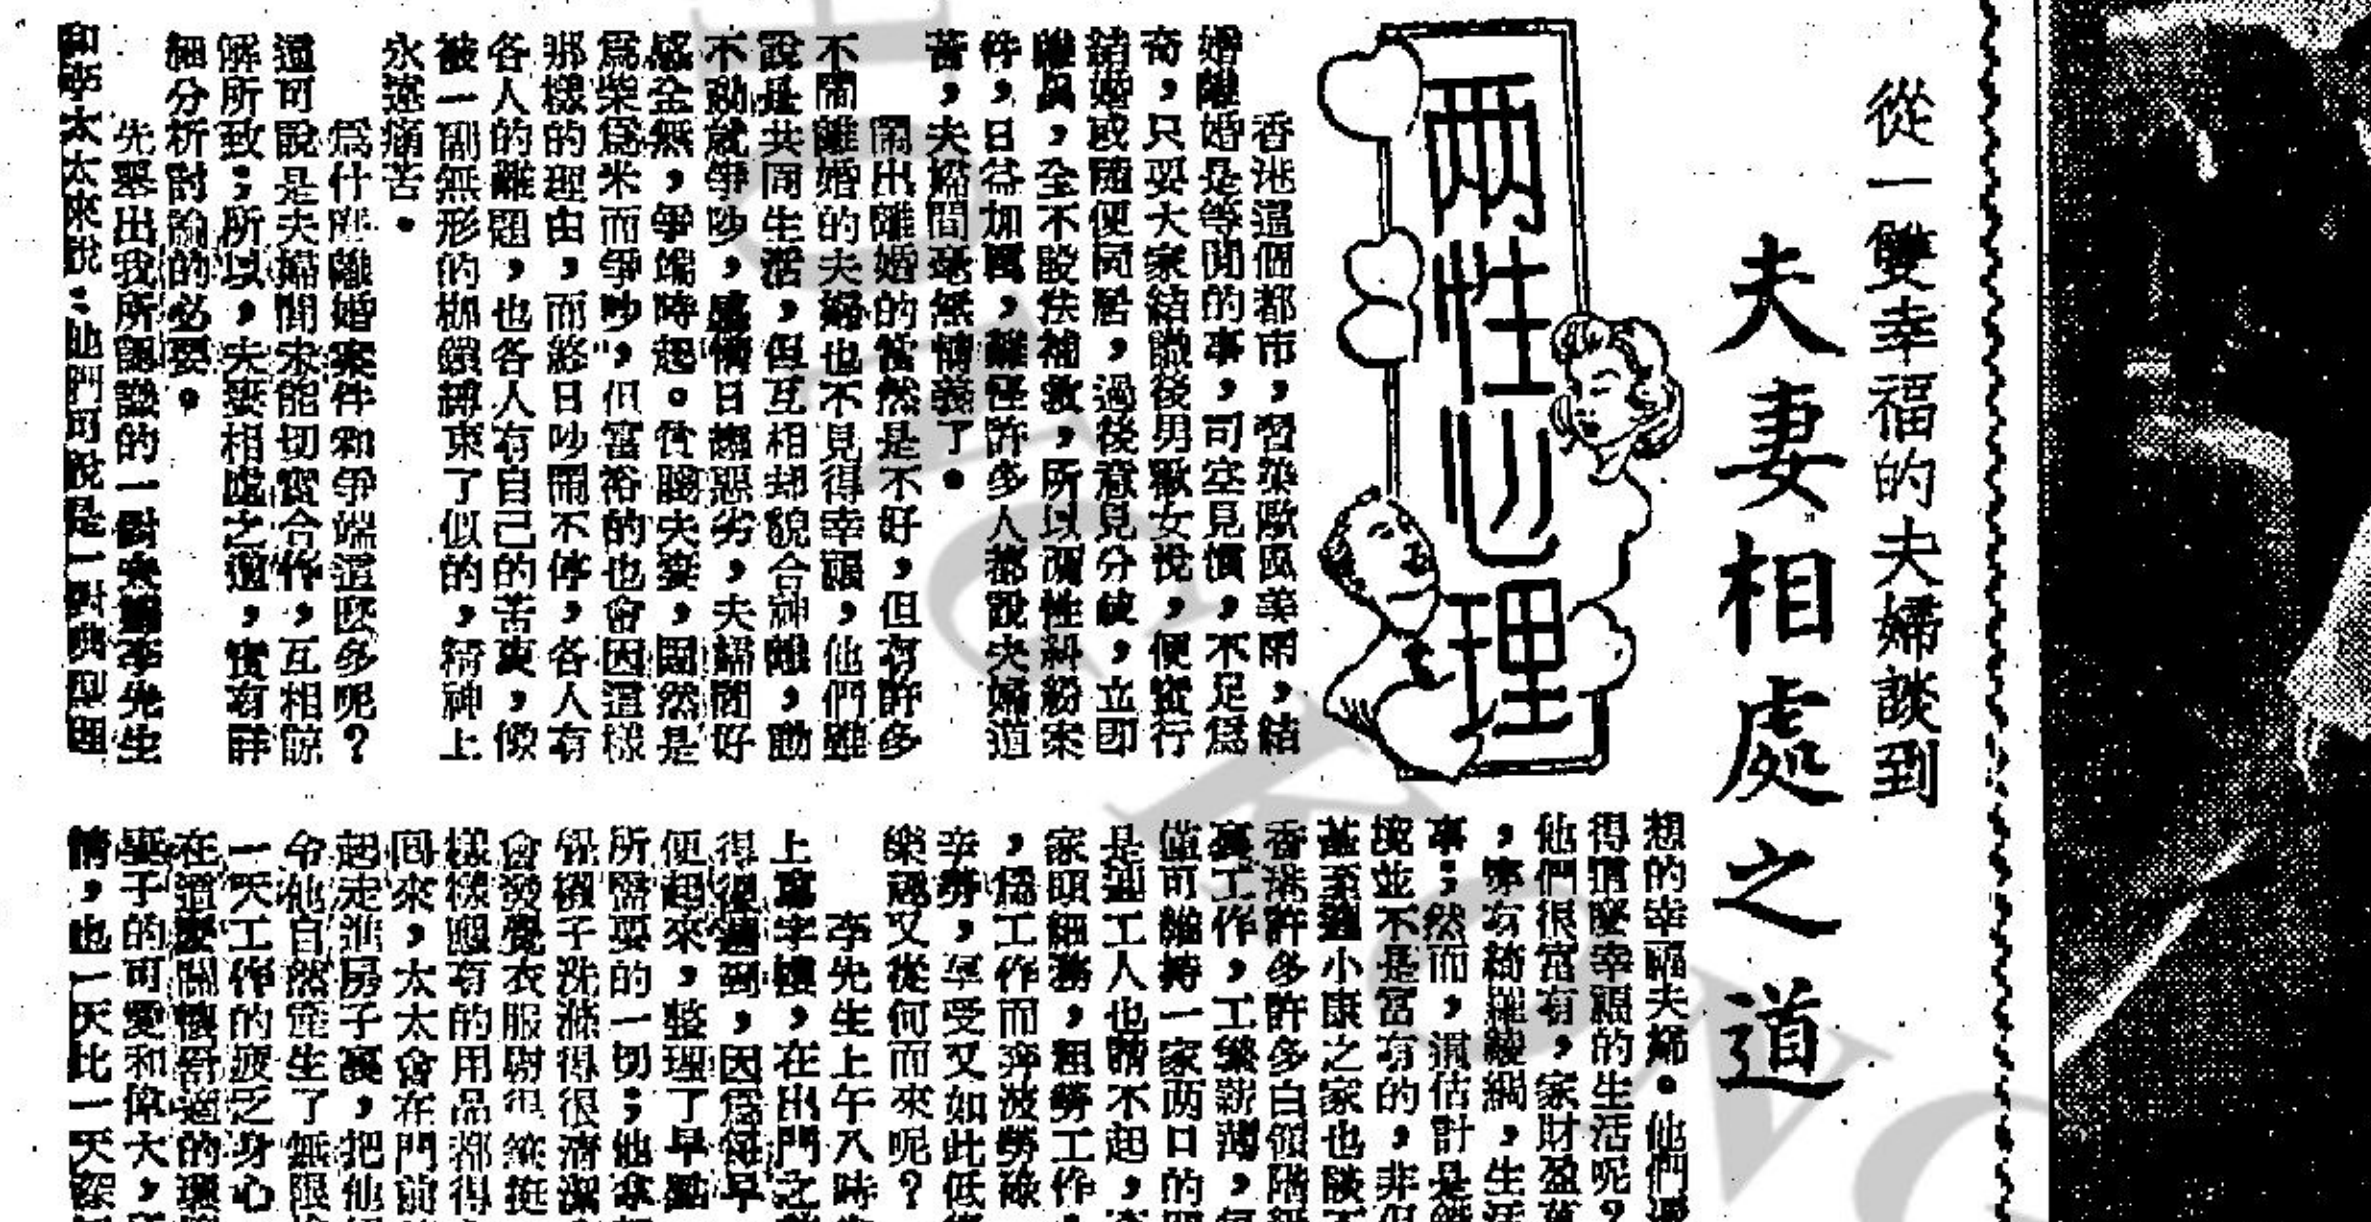 從一雙幸福的夫婦談到
夫妻相處之道
两性心理
香港這個都市，習染歐風美雨，結
婚離婚是等閒的事，司空見慣，不足爲
奇，只要大家結識後男歡女悅，便實行
結婚或隨便同居，過後意見分歧，立即
離異，全不設法補救，所以兩性糾紛案
件，日益加厲，難怪許多人都說夫婦道
苦，夫婦間毫無情義了。
鬧出離婚的當然是不好，但有許多
不鬧離婚的夫婦也不見得幸福，他們雖
說是共同生活，但互相却貌合神離，動
不動就爭吵，感情日趨惡劣，夫婦間好
感全無，爭端時起。貧賤夫妻，固然是
爲柴爲米而爭吵，但富裕的也會因這樣
那樣的理由，而終日吵鬧不停，各人有
各人的難題，也各人有自己的苦衷，像
被一副無形的枷鎖縛束了似的，精神上
永遠痛苦。
爲什麽離婚案件和爭端這麽多呢？
這可說是夫婦間未能切實合作，互相諒
解所致；所以，夫妻相處之道，實有詳
細分析討論的必要。
先舉出我所認識的一對夫婦李先生
和李太太來說：他們可說是一對典型理
想的幸福夫婦。他們
得這麽幸福的生活呢？
他們很富有，家財盈
，亦有綺羅綾綢，生活
事；然而，據估計是
境並不是富有的，非但
甚至連小康之家也談不
香港許多許多白領階級
寫工作，工作薪濶，每
僅可維持一家两口的
是連工人也請不起，
家頭細務，粗勞工作，
，爲工作而奔波勞碌
辛勞，享受又如此低
樂趣又從何而來呢？
李先生上午八時
上寫字樓，在出門之
得很週到，因爲每早
便起來，整理了早點
所需要的一切；他拿
得襪子洗滌得很清潔
會發覺衣服熨得筆挺
樣樣應有的用品都得
囘來，太太會在門前
起走進房子裏，把他
令他自然產生了無限
一天工作的疲乏身心
在這麽關懷舒適的環
妻子的可愛和偉大，
情，也一天比一天深